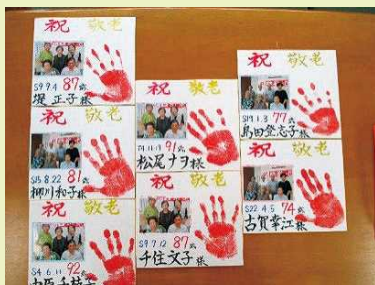 祝 敬老
S9.9.4 87歳
堤 正子様
祝 敬老
S15.8.22 81歳
柳川和子様
祝 敬老
S4.6.11 92歳
千枝子
祝 敬老
91歳
松尾ナヲ様
祝 敬老
S9.7.12 87歳
千住文子様
祝 敬老
S19.1.3 77歳
島田登志子様
祝 敬老
S22.4.5 74歳
古賀幸江様